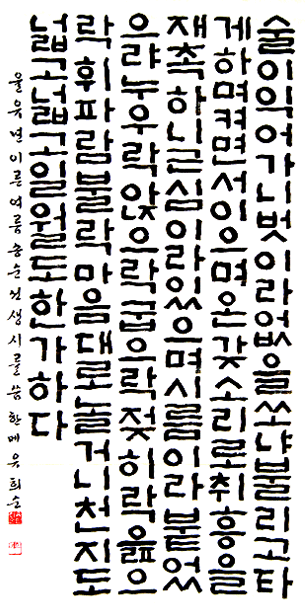 술이익어가니벗이라없을쏘냐불리고타
게하며켜면서이으며온갖소리로취흥을
재촉하니근심이라있으며시름이라붙었
으랴누우락앉으락굽으락젖히락읊으
락휘파람불락마음대로놀거니천지도
넓고넓고일월도한가하다
을유년이른여름송순선생시를씀한메유희순